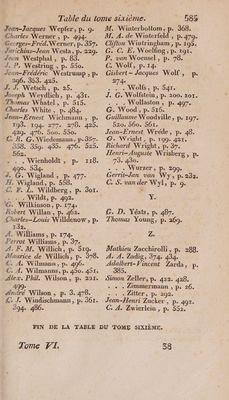 Table du tome sixième. 585
Jean-Jacques Wepfer, p. 9.
Charles Werner, p. 494.
Georges-Fréd. Werner, p. 357.
Joachim-Jean Westa, p. 229.
Jean Westphal, p. 83.
J. P. Westring, p. 550.
Jean-Frédéric Westrump, p.
296. 363. 425.
J. J. Wetsch, p. 25.
Joseph Weydlich, p. 431.
Thomas Whatel, p. 515.
Charles White, p. 484.
Jean-Ernest Wichmann, p.
193. 194. 277. 278. 425.
429. 476. 500. 550.
C. R. G. Wiedemann, p. 357.
358. 359. 435. 476. 525.
562.
. . Wienholdt, p. 118.
490. 534.
J. G. Wigland, p. 477.
H. Wigland, p. 558.
C. F. L. Wildberg, p. 301.
. . Wildt, p. 492.
G. Wilkinson, p. 174.
Robert Willan, p. 462.
Charles-Louis Willdenow, p.
132.
A. Williams, p. 174.
Perrot Williams, p. 37.
A. F. M. Willich, p. 519.
Maurice de Willich, p. 378.
C. A. Wilmann, p. 496.
C. A. Wilmanns, p. 450. 451.
Alex. Phil. Wilson, p. 221.
499.
André Wilson, p. 3. 478.
K. J. Windischmann, p. 361.
394. 486.
M. Winterbottom, p. 368.
M. A. de Winterfeld, p. 479.
Clifton Wintringham, p. 195.
G. C. E. Woelfing, p. 191.
P. van Woensel, p. 78.
C. Wolf, p. 14.
Gisbert-Jacques Wolf, p.
274.
. . Wolfs, p. 541.
J. G. Wolfstein, p. 200. 201.
. . Wollaston, p. 497.
G. Wood, p. 516.
Guillaume Woodville, p. 197.
520. 560. 561.
Jean-Ernest Wrede, p. 48.
G. Wright, p. 199. 421.
Richard Wright, p. 37.
Henri-Auguste Wrisberg, p.
73. 430.
. . Wurzer, p. 299.
Gerrit-Jan van Wy, p. 232.
C. S. van der Wyl, p. 9.
Y.
G. D. Yéats, p. 487.
Thomas Young, p. 269.
Z.
Mathieu Zacchirolli, p. 288.
A. A. Zadig, 374. 434.
Adalbert-Vincent Zarda, p.
385.
Simon Zeller, p. 422. 428.
. . . Zimmermann, p. 26.
. . . Zitter, p. 292.
Jean-Henri Zucker, p. 491.
C. A. Zwierlein, p. 552.
FIN DE LA TABLE DU TOME SIXIÈME.
Tome VI. 38